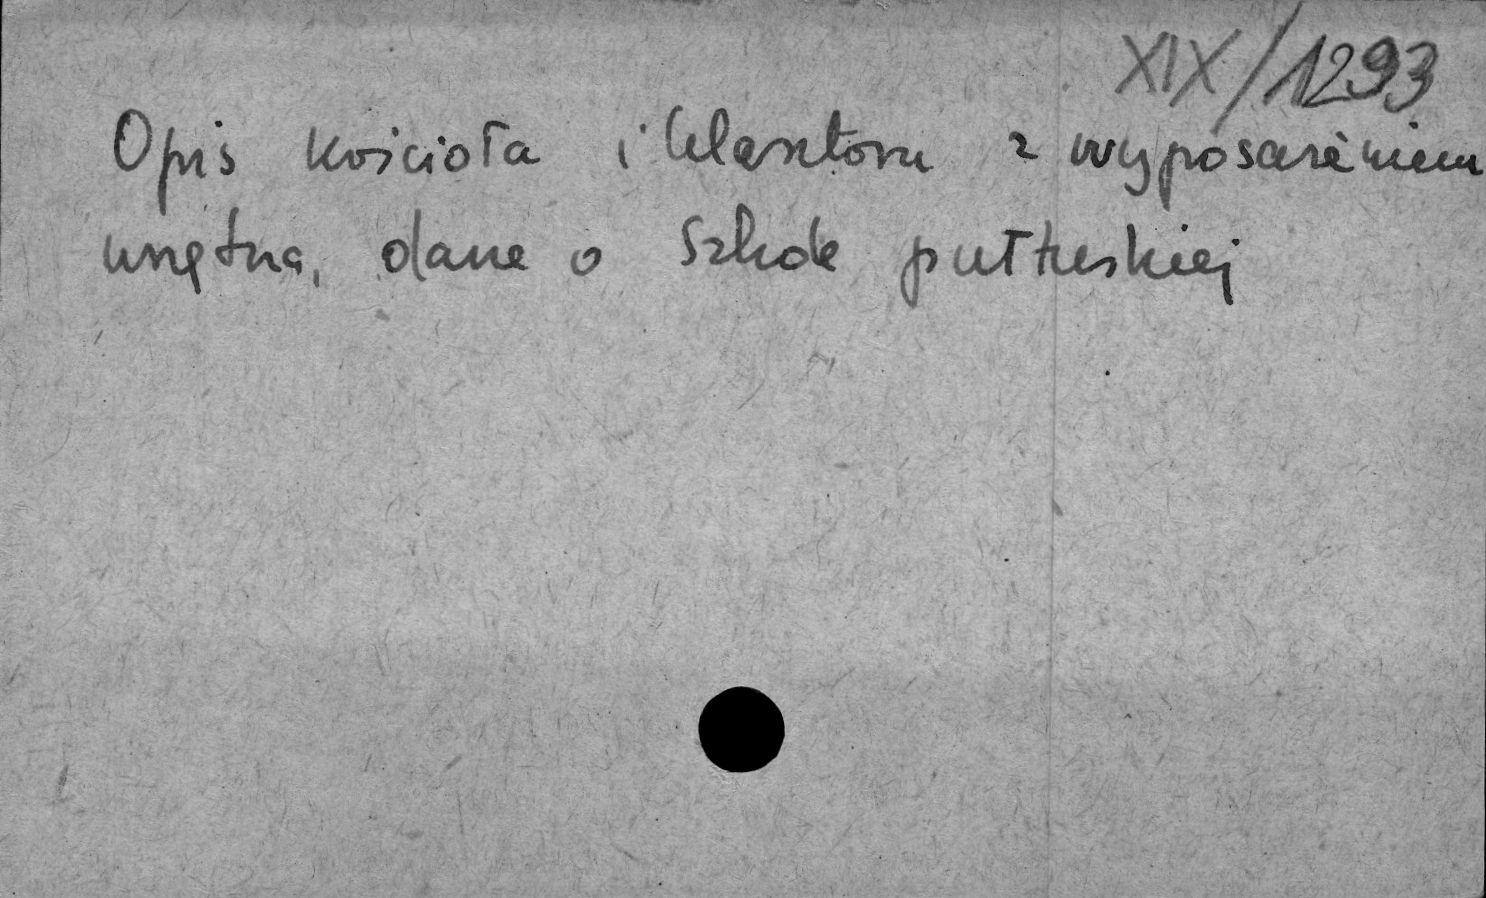 XIX/1293
Opis kościoła i klasztoru z wyposażeniem
wnętrza, dane o szkole pułtuskiej